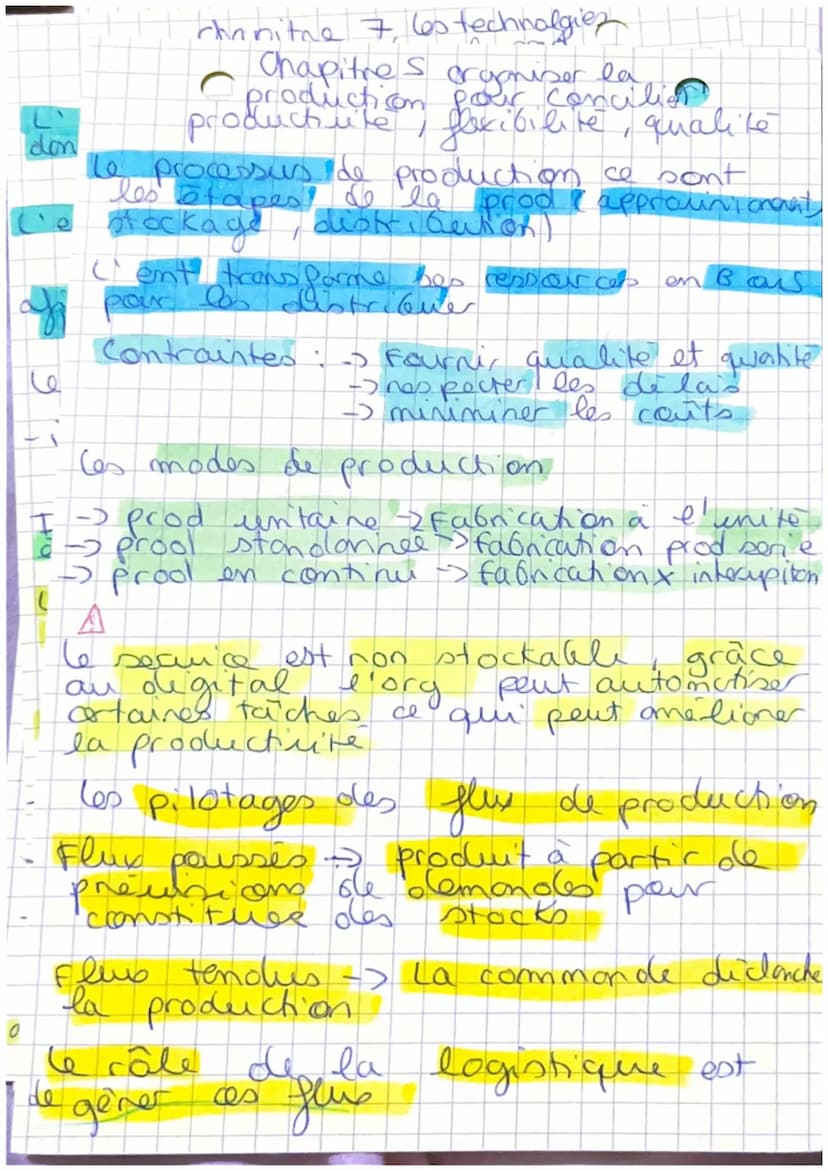 7. les technolgies
Chapitre 5 organiser la
production pour concilier
productivité, flexibilité, qualité
L'
don
Le processus de production ce sont
les étapes de la prod (approvisionant,
L'e
stockage, distribution)
L'ent transforme ses ressources en B ou S
pour les distribuer
afi
Contraintes : -> Fournir qualité et quantité
Le
-> respecter les délais
-> miniminer les coûts
-i
Les modes de production
I
-> prod unitaire -> Fabrication à l'unité
-> prod standarisée -> fabrication prod serie
-> prod en continu -> fabrication x interupiton
Le service est non stockable, grâce
au digital l'org peut automatiser
certaines tâches ce qui peut améliorer
la productivité
Les pilotages des flux de production
Flux poussés -> produit à partir de
prévisions de demandes pour
constituer des stocks
Flux tendus -> La commande déclanche
la production
Le rôle de la logistique est
de gérer ces flux